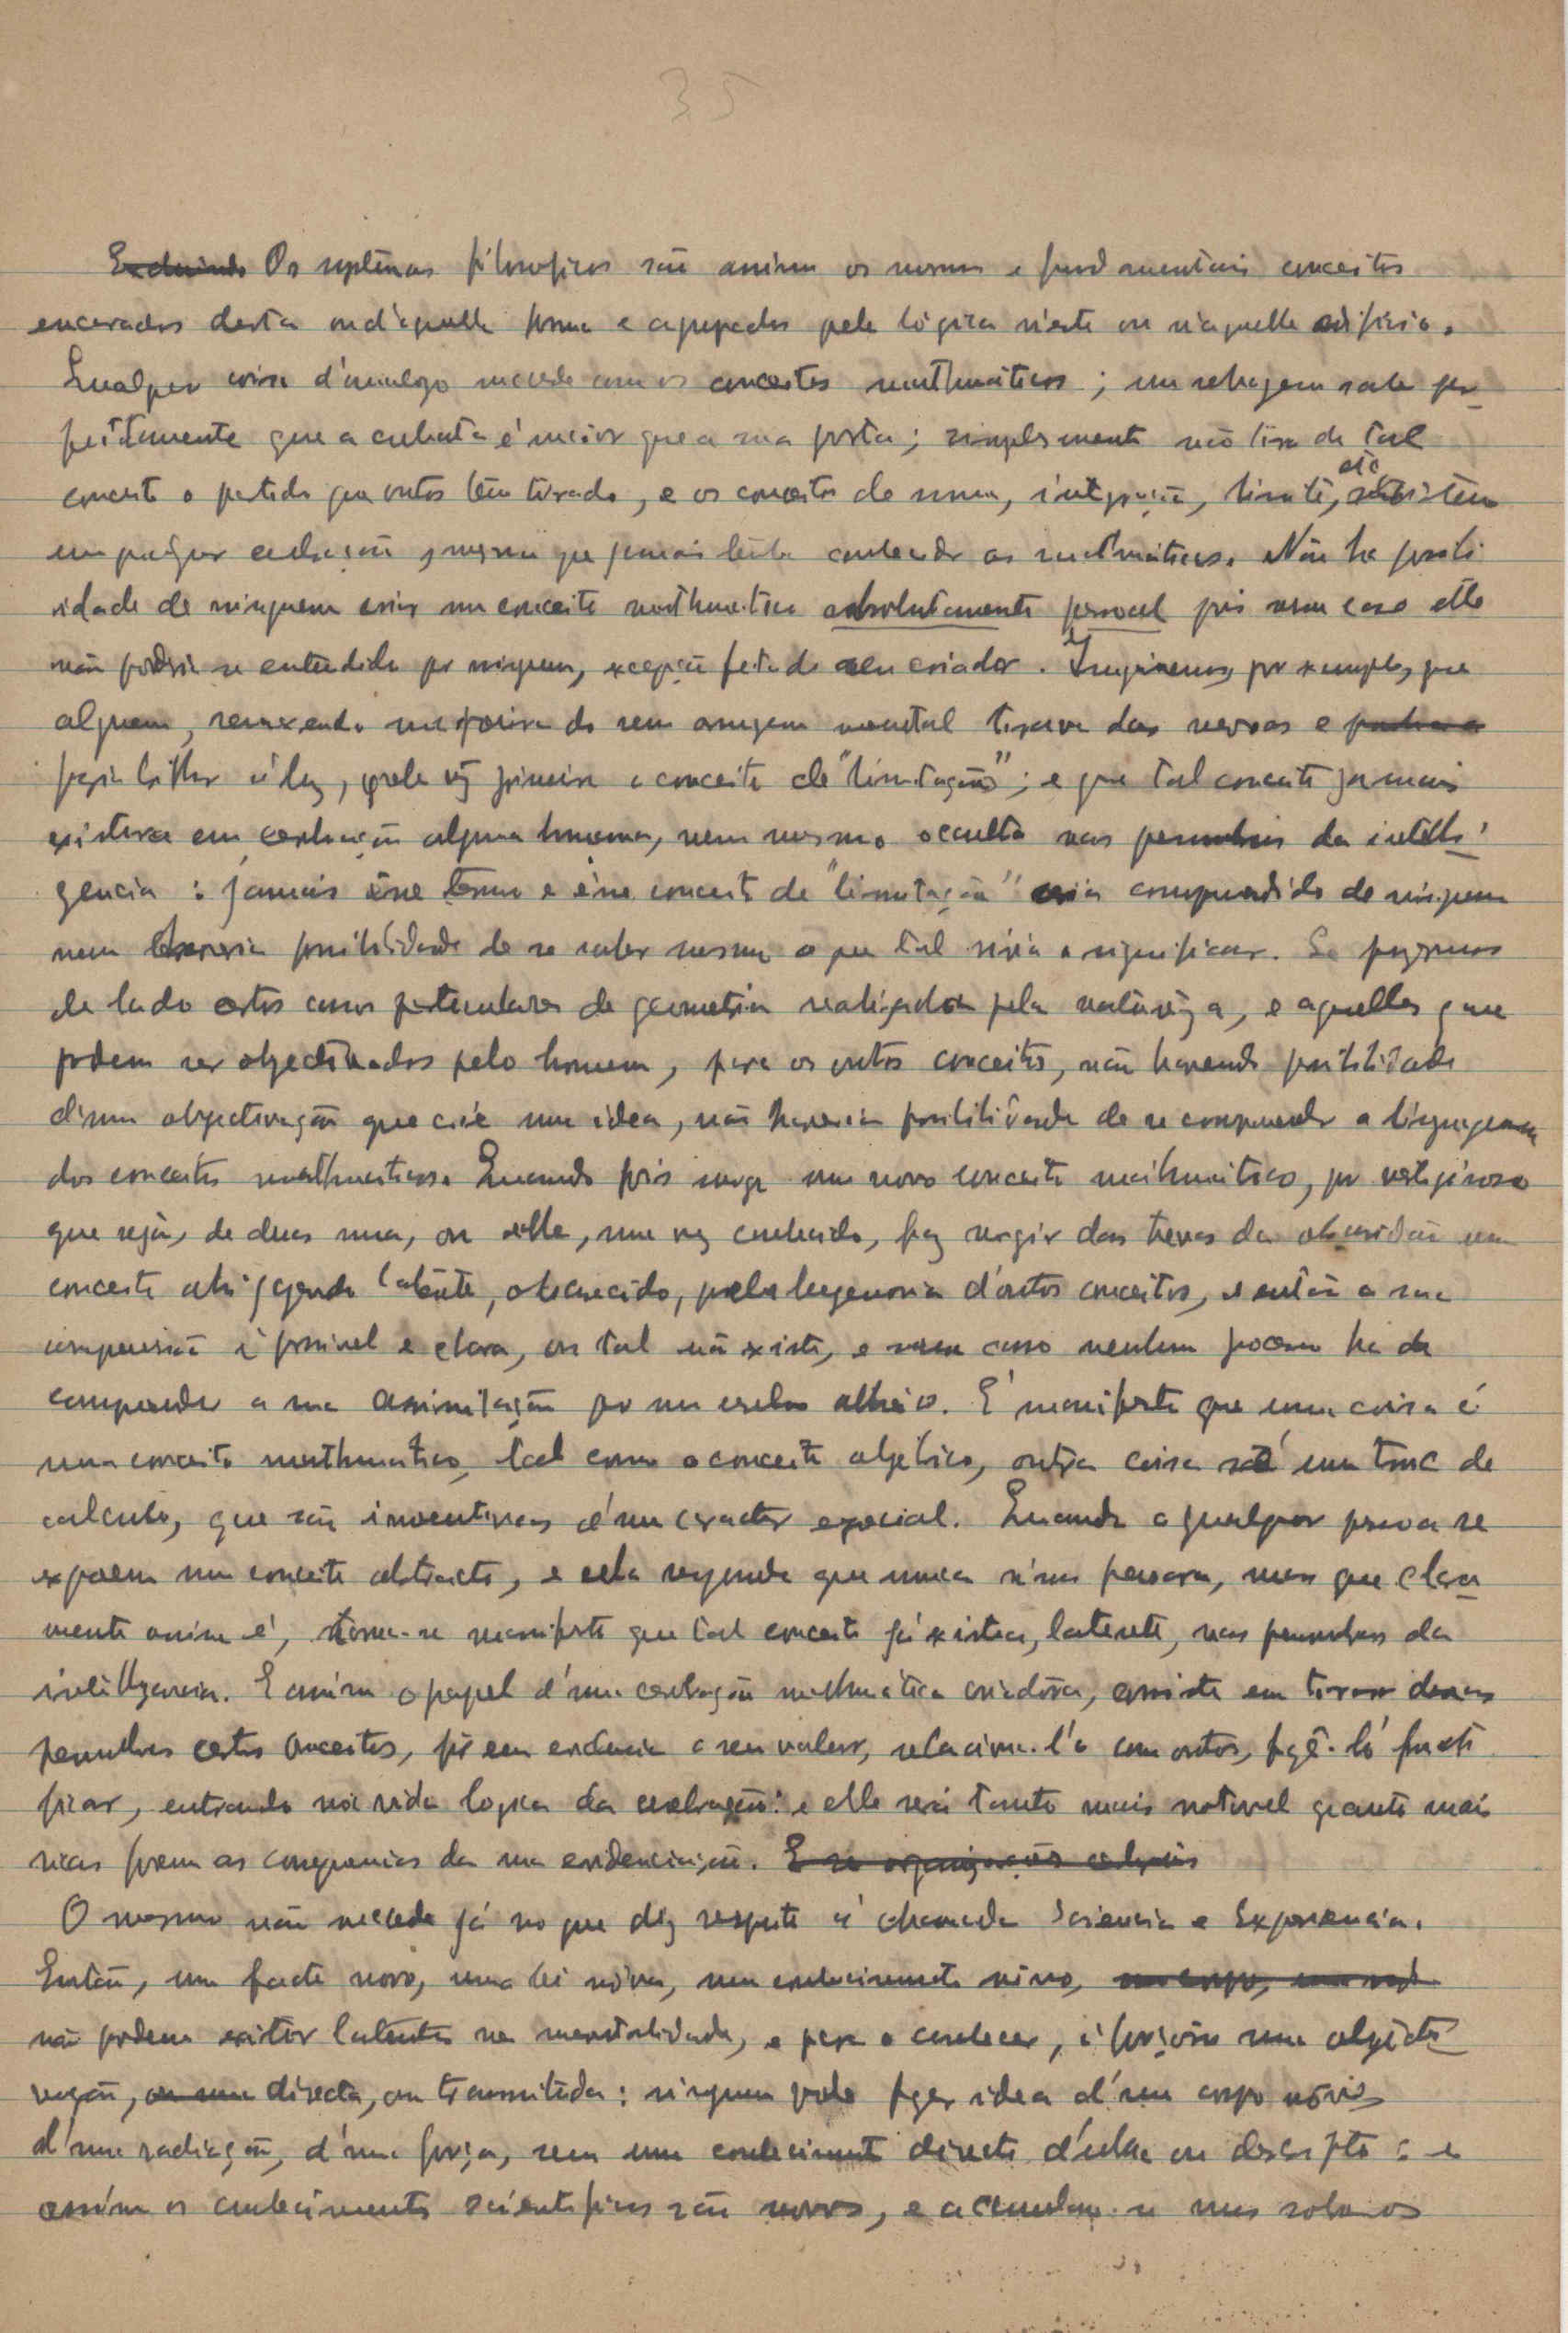 35
Excluindo Os systêmas filosoficos são assim os mesmos e fundamentais conceitos
encarados desta ou d'aquella forma e agrupados pela lógica n'este ou n'aquelle edificio.
Qualquer coisa d'analogo succede com os conceitos mathmáticos ; um selvagem sabe per-
feitamente que a cubata é maior que a sua porta ; simplesmente não tira de tal
conceito o partido que outros têm tirado, e os conceitos de soma, integração, limite, etc existem
em qualquer cerebração, mesmo que jamais tenha conhecido as mathmáticas. Não ha possibi-
lidade de ninguem criar um conceito mathmatico absolutamente pessoal pois nesse caso elle
não poderia ser entendido por ninguem, excepção feita do seu criador. Imaginemos, por exemplo, que
alguem, remexendo na poeira do seu armazem mental tirava das nevoas e punha a
fazia brilhar á luz, pela vez primeira o conceito de "limitação" ; e que tal conceito jamais
existira em cerebração alguma humana, nem mesmo occulto nas penumbras da intelli-
gencia : jamais êsse termo e êsse conceito de "limitação" seria comprendido de ninguem
nem haveria possibilidade de se saber mesmo o que tal viria a significar. Se pozermos
de lado estes casos particulares de geometria realizados pela naturêza, e aquelles que
podem ser objectivados pelo homem, para os outros conceitos, não havendo possibilidade
d'uma objectivação que crie uma idea, não haveria possibilidade de se comprender a linguagem
dos conceitos mathmaticos. Quando pois surge um novo conceito mathmático, por vertiginoso
que seja, de duas uma, ou elle, uma vez conhecido, faz surgir das trevas da obscuridão um
conceito ahi jazendo latente, obscurecido, pela hegemonia d'outros conceitos, e então a sua
comprensão é possivel e clara, ou tal não existe, e nesse caso nenhum processo ha de
comprender a sua assimilação por um cerebro alheio. É manifesto que uma coisa é
um conceito mathmático, tal como o conceito algébrico, outra coisa é um truc de
calculo, que são inventivas d'um caracter especial. Quando a qualquer pessoa se
expoem um conceito abstracto, e ella responde que nunca n'isso pensara, mas que clara-
mente assim é, torna-se manifesto que tal conceito já existia, latente, nas penumbras da
intelligencia. E assim o papel d'uma cerebração mathmática criadôra, consiste em tirar dessas
penumbras certos conceitos, pôr em evidencia o seu valor, relacioná-lo com outros, fazê-lo fructi-
ficar, entrando na vida logica da cerebração : e elle será tanto mais notavel quanto mais
ricas forem as consequencias da sua evidenciação. E as organizações cerebrais
O mesmo não succede já no que diz respeito á chamada Sciencia e Experiencia.
Então, um facto novo, uma lei nova, um conhecimento novo,
não podem existir latentes na mentalidade, e para o conhecer, é forçoso uma objecti-
vação, ou uma directa, ou transmitida : ninguem pode fazer idea d'um corpo novo,
d'uma radiação, d'uma força, sem um conhecimento directo d'ella ou descripto : e
assim os conhecimentos scientificos são novos, e acumulam-se uns sobre os